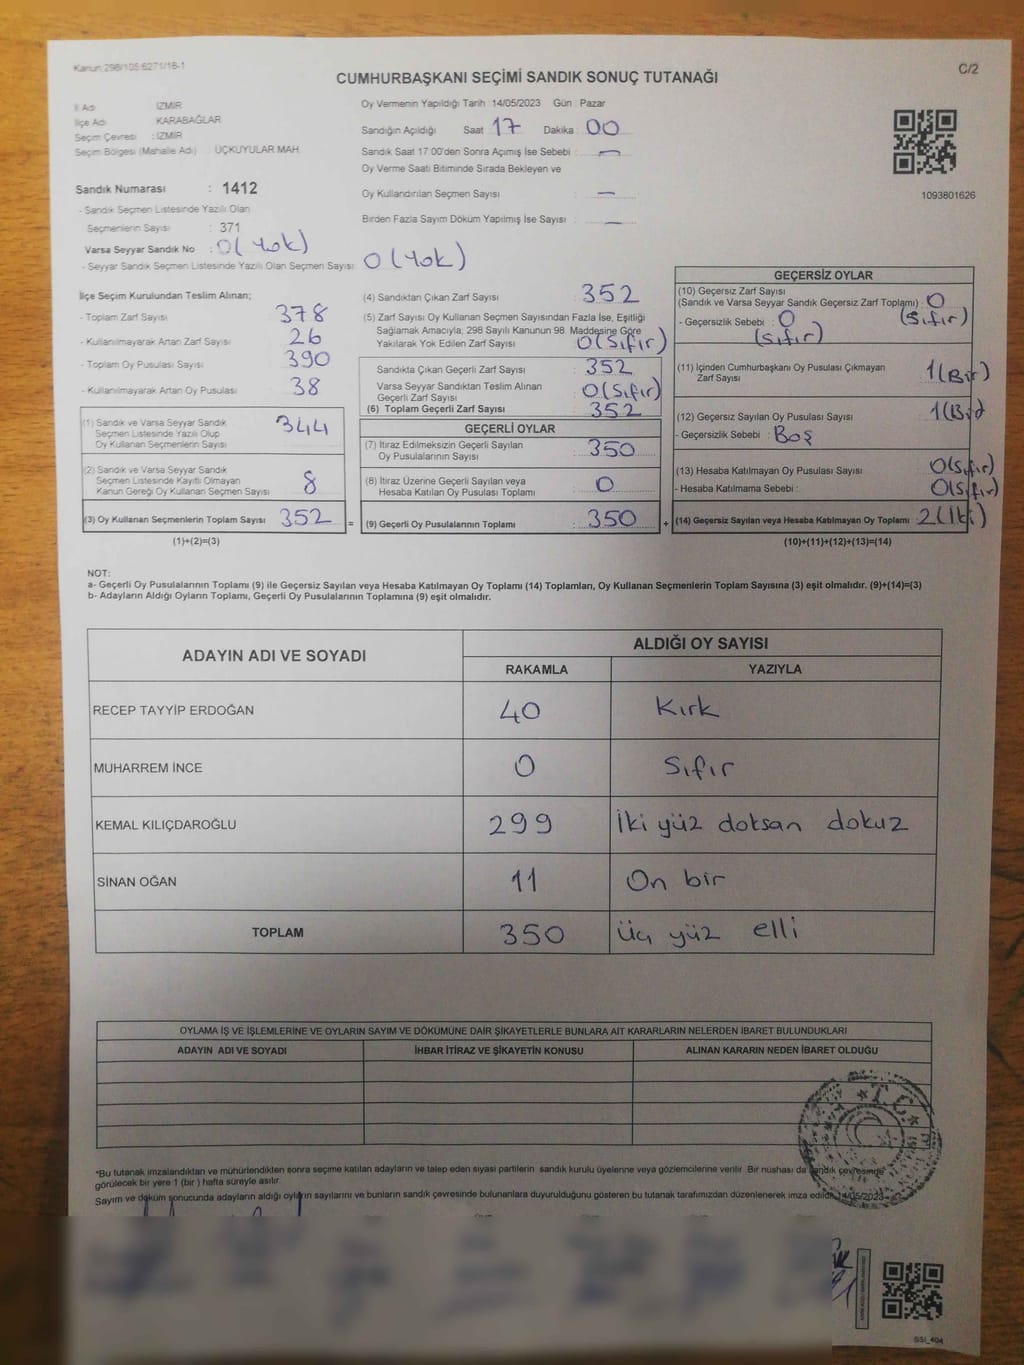 Kanun:298/105:6271/18-1
C/2
CUMHURBAŞKANI SEÇİMİ SANDIK SONUÇ TUTANAĞI
İl Adı İZMİR
İlçe Adı KARABAĞLAR
Seçim Çevresi : İZMİR
Seçim Bölgesi (Mahalle Adı) ÜÇKUYULAR MAH.
Sandık Numarası : 1412
- Sandık Seçmen Listesinde Yazılı Olan
Seçmenlerin Sayısı : 371
Varsa Seyyar Sandık No : 0 (Yok)
- Seyyar Sandık Seçmen Listesinde Yazılı Olan Seçmen Sayısı: 0 (Yok)
Oy Vermenin Yapıldığı Tarih : 14/05/2023 Gün : Pazar
Sandığın Açıldığı Saat 17 Dakika : 00
Sandık Saat 17:00'den Sonra Açımış İse Sebebi : —
Oy Verme Saati Bitiminde Sırada Bekleyen ve
Oy Kullandırılan Seçmen Sayısı : —
Birden Fazla Sayım Döküm Yapılmış İse Sayısı : —
1093801626
İlçe Seçim Kurulundan Teslim Alınan;
- Toplam Zarf Sayısı 378
- Kullanılmayarak Artan Zarf Sayısı 26
- Toplam Oy Pusulası Sayısı 390
- Kullanılmayarak Artan Oy Pusulası 38
(1) Sandık ve Varsa Seyyar Sandık
Seçmen Listesinde Yazılı Olup
Oy Kullanan Seçmenlerin Sayısı 344
(2) Sandık ve Varsa Seyyar Sandık
Seçmen Listesinde Kayıtlı Olmayan
Kanun Gereği Oy Kullanan Seçmen Sayısı 8
(3) Oy Kullanan Seçmenlerin Toplam Sayısı 352 =
(1)+(2)=(3)
(4) Sandıktan Çıkan Zarf Sayısı : 352
(5) Zarf Sayısı Oy Kullanan Seçmen Sayısından Fazla İse, Eşitliği
Sağlamak Amacıyla; 298 Sayılı Kanunun 98. Maddesine Göre
Yakılarak Yok Edilen Zarf Sayısı 0 (Sıfır)
Sandıkta Çıkan Geçerli Zarf Sayısı : 352
Varsa Seyyar Sandıktan Teslim Alınan
Geçerli Zarf Sayısı : 0 (Sıfır)
(6) Toplam Geçerli Zarf Sayısı : 352
GEÇERLİ OYLAR
(7) İtiraz Edilmeksizin Geçerli Sayılan
Oy Pusulalarının Sayısı : 350
(8) İtiraz Üzerine Geçerli Sayılan veya
Hesaba Katılan Oy Pusulası Toplamı : 0
(9) Geçerli Oy Pusulalarının Toplamı : 350 +
GEÇERSİZ OYLAR
(10) Geçersiz Zarf Sayısı
(Sandık ve Varsa Seyyar Sandık Geçersiz Zarf Toplamı) : 0 (Sıfır)
- Geçersizlik Sebebi : 0 (Sıfır)
(11) İçinden Cumhurbaşkanı Oy Pusulası Çıkmayan
Zarf Sayısı 1 (Bir)
(12) Geçersiz Sayılan Oy Pusulası Sayısı 1 (Bir)
- Geçersizlik Sebebi : Boş
(13) Hesaba Katılmayan Oy Pusulası Sayısı 0 (Sıfır)
- Hesaba Katılmama Sebebi : 0 (Sıfır)
(14) Geçersiz Sayılan veya Hesaba Katılmayan Oy Toplamı : 2 (İki)
(10)+(11)+(12)+(13)=(14)
NOT:
a- Geçerli Oy Pusulalarının Toplamı (9) ile Geçersiz Sayılan veya Hesaba Katılmayan Oy Toplamı (14) Toplamları, Oy Kullanan Seçmenlerin Toplam Sayısına (3) eşit olmalıdır. (9)+(14)=(3)
b- Adayların Aldığı Oyların Toplamı, Geçerli Oy Pusulalarının Toplamına (9) eşit olmalıdır.
ADAYIN ADI VE SOYADI ALDIĞI OY SAYISI
RAKAMLA YAZIYLA
RECEP TAYYİP ERDOĞAN 40 Kırk
MUHARREM İNCE 0 Sıfır
KEMAL KILIÇDAROĞLU 299 İki yüz doksan dokuz
SİNAN OĞAN 11 On bir
TOPLAM 350 Üç yüz elli
OYLAMA İŞ VE İŞLEMLERİNE VE OYLARIN SAYIM VE DÖKÜMÜNE DAİR ŞİKAYETLERLE BUNLARA AİT KARARLARIN NELERDEN İBARET BULUNDUKLARI
ADAYIN ADI VE SOYADI İHBAR İTİRAZ VE ŞİKAYETİN KONUSU ALINAN KARARIN NEDEN İBARET OLDUĞU
T.C.
*Bu tutanak imzalandıktan ve mühürlendikten sonra seçime katılan adayların ve talep eden siyasi partilerin sandık kurulu üyelerine veya gözlemcilerine verilir. Bir nüshası da sandık çevresinde
görülecek bir yere 1 (bir) hafta süreyle asılır.
Sayım ve döküm sonucunda adayların aldığı oyların sayılarını ve bunların sandık çevresinde bulunanlara duyurulduğunu gösteren bu tutanak tarafımızdan düzenlenerek imza edildi. 14/05/2023
SSİ_404